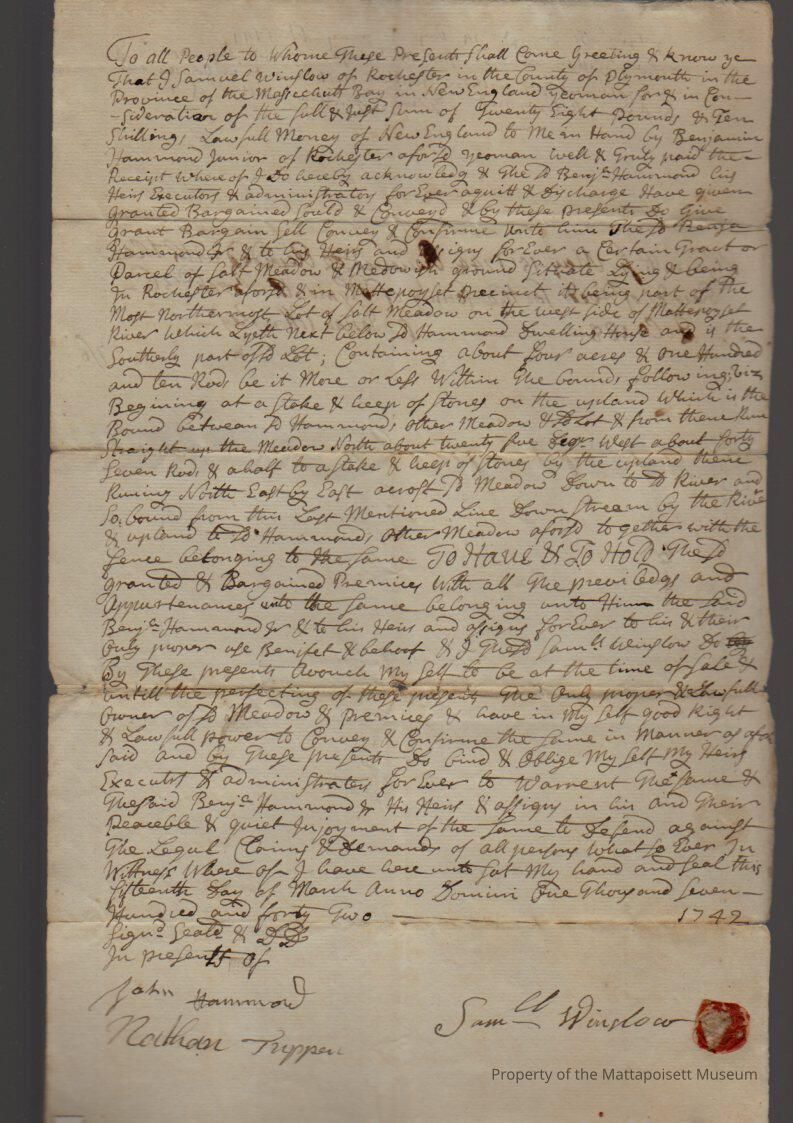 To all People to Whome These Presents Shall Come Greeting & know ye
That I Samuel Winslow of Rochester in the County of Plymouth in the
Province of the Massechuts Bay in New England yeoman for & in Con-
-sideration of the full & Just Sum of Twenty Eight Pounds & Ten
Shillings Lawfull Money of New England to Me in Hand by Benjamin
Hammond Junior of Rochester aforsd yeoman well & Truly paid the-
Receipt Where of I Do hereby acknowledg & The sd Benjn Hammond his
Heirs Executors & administrators for Ever aquitt & Discharge Have given
Granted Bargained Sould & Conveyd & by these presents Do Give
Grant Bargain Sell Convey & Confirme unto him The sd Benja
Hammond Jr & to his Heirs and assigns for Ever a Certain Tract or
Parcel of Salt Meadow & Medowish ground Situate Lying & being
In Rochester aforsd & in Mattepoyset Precinct it being part of The
Most Northermost Lot of Salt Meadow on the west side of Mattepoyset
River Which Lyeth Next below sd Hammond Dwelling House and is the
Southerly part of sd Lot; Containing about four acres & one Hundred
and ten Rods be it More or Less Within The bounds following; viz
Begining at a Stake & heep of Stones on the upland Which is the
Bound between sd Hammonds other Meadow & sd Lot & from thence Run
Straight up the Meadow North about twenty five Degr West about forty
Seven Rods & a half to a Stake & heep of Stones by the upland thence
Runing North East by East across sd Meadow Down to sd River and
So bound from this Last Mentioned Line Down Stream by the River
& upland to sd Hammonds other Meadow aforsd together with the
fence belonging to the same To Have & To Hold The sd
granted & Bargained Premices With all The previledgs and
Appurtenances unto the Same belonging unto Him the said
Benjn Hammond Jr & to his Heirs and assigns for Ever to his & their
Only proper use Benifet & behoof & I The sd Samll Winslow Do
By These presents Avouch My Self to be at the time of Sale &
untill the perfecting of these presents The Only proper & Lawfull
owner of sd Meadow & premices & have in My Self good Right
& Lawfull power to Convey & Confirme the Same in Manner as afore
said and by These presents Do bind & Oblige My Self My Heirs
Executrs & administrators for Ever to Warrent The Same &
The said Benjn Hammond Jr His Heirs & assigns in his and Their
Peaceble & quiet Injoyment of the Same to Defend against
The Legal Claims & Demands of all persons What so Ever In
Wittness Where of I have here unto Sat My hand and Seal this
fifteenth Day of March Anno Domini One Thousand Seven-
Hundred and forty Two 1742
Signd Seald & DD
In presents of
John Hammond
Nathan Tuppen
Samll Winslow
Property of the Mattapoisett Museum